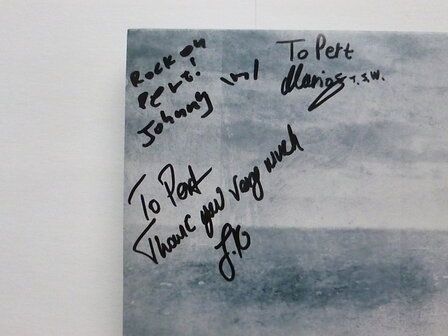 Rock on
Pert!
Johnny
To Pert
Marios T.S.W.
To Pert
Thank you very much
J.K